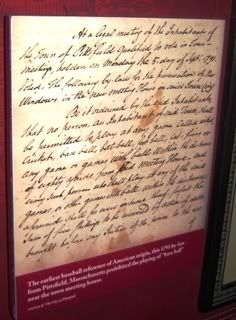 At a legal meeting of the Inhabitants of
the Town of Pittsfield qualified to vote in Town
meeting, holden on Monday the 5th day of Sept 1791
Voted, The following by law for the preservation of the
Windows in the new meeting House
Be it ordered by the said Inhabitants
that no person, an Inhabitant of said Town, shall
be permitted to play at any game called
Cricket, base ball, bat ball, foot ball, cat,
any game or games with balls within the distance
of eighty yards from said Meeting House and
every such person who shall play at any of the said
games or other games with balls within the distance
aforesaid, shall for every instance thereof forfeit the
Sum of five shillings to be
The earliest baseball reference of American origin, this 1791 by-law
from Pittsfield, Massachusetts prohibited the playing of "base ball"
near the town meeting house.